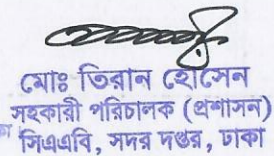 মোঃ তিরান হোসেন
সহকারী পরিচালক (প্রশাসন)
সিএএবি, সদর দপ্তর, ঢাকা